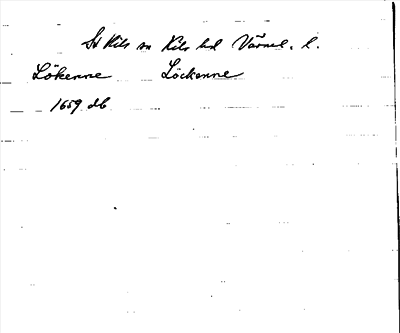 St Kils sn Kils hd Värml. l.
Lökenne Löckenne
1659 db